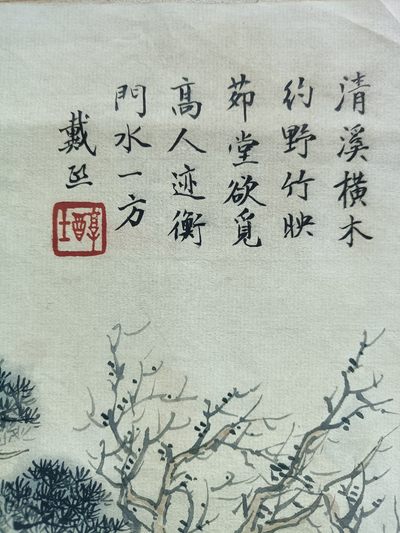 清溪横木
约野竹映
茆堂欲覓
高人迹衡
門水一方
戴熙
醇士